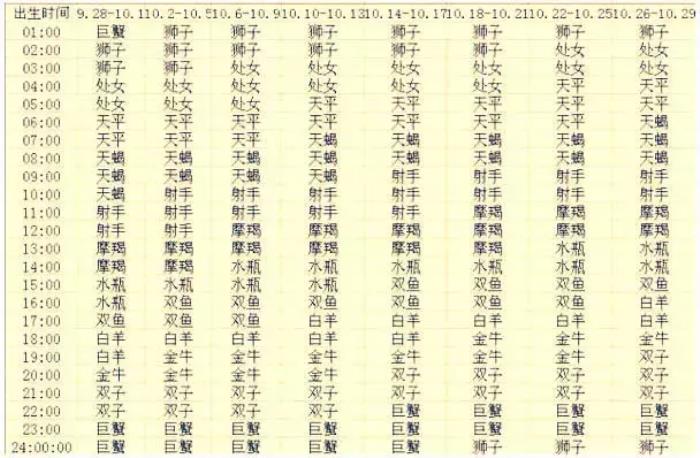 出生时间 9.28-10.1 10.2-10.5 10.6-10.9 10.10-10.13 10.14-10.17 10.18-10.21 10.22-10.25 10.26-10.29
01:00 巨蟹 狮子 狮子 狮子 狮子 狮子 狮子 狮子
02:00 狮子 狮子 狮子 狮子 狮子 狮子 处女 处女
03:00 狮子 狮子 处女 处女 处女 处女 处女 处女
04:00 处女 处女 处女 处女 处女 处女 天平 天平
05:00 处女 处女 处女 天平 天平 天平 天平 天平
06:00 天平 天平 天平 天平 天平 天平 天平 天蝎
07:00 天平 天平 天平 天蝎 天蝎 天蝎 天蝎 天蝎
08:00 天蝎 天蝎 天蝎 天蝎 天蝎 天蝎 天蝎 天蝎
09:00 天蝎 天蝎 天蝎 天蝎 射手 射手 射手 射手
10:00 天蝎 射手 射手 射手 射手 射手 射手 射手
11:00 射手 射手 射手 射手 射手 摩羯 摩羯 摩羯
12:00 射手 射手 摩羯 摩羯 摩羯 摩羯 摩羯 摩羯
13:00 摩羯 摩羯 摩羯 摩羯 摩羯 摩羯 水瓶 水瓶
14:00 摩羯 摩羯 水瓶 水瓶 水瓶 水瓶 水瓶 水瓶
15:00 水瓶 水瓶 水瓶 水瓶 双鱼 双鱼 双鱼 双鱼
16:00 水瓶 双鱼 双鱼 双鱼 双鱼 双鱼 双鱼 白羊
17:00 双鱼 双鱼 双鱼 白羊 白羊 白羊 白羊 白羊
18:00 白羊 白羊 白羊 白羊 白羊 金牛 金牛 金牛
19:00 白羊 金牛 金牛 金牛 金牛 金牛 金牛 双子
20:00 金牛 金牛 金牛 金牛 双子 双子 双子 双子
21:00 双子 双子 双子 双子 双子 双子 双子 双子
22:00 双子 双子 双子 双子 巨蟹 巨蟹 巨蟹 巨蟹
23:00 巨蟹 巨蟹 巨蟹 巨蟹 巨蟹 巨蟹 巨蟹 巨蟹
24:00:00 巨蟹 巨蟹 巨蟹 巨蟹 巨蟹 狮子 狮子 狮子